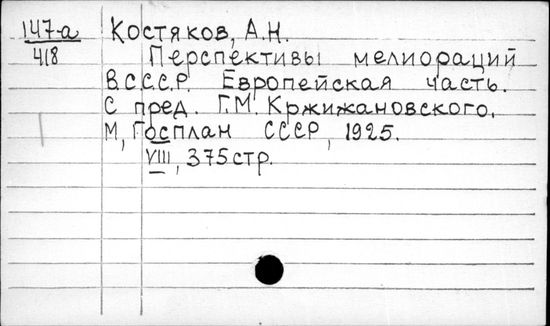 147-а Костяков, А.Н.
418 Перспективы мелиораций
В С.С.С.Р. Европейская часть.
С пред. Г.М. Кржижановского.
М, Госплан СССР, 1925.
VIII, 375 стр.